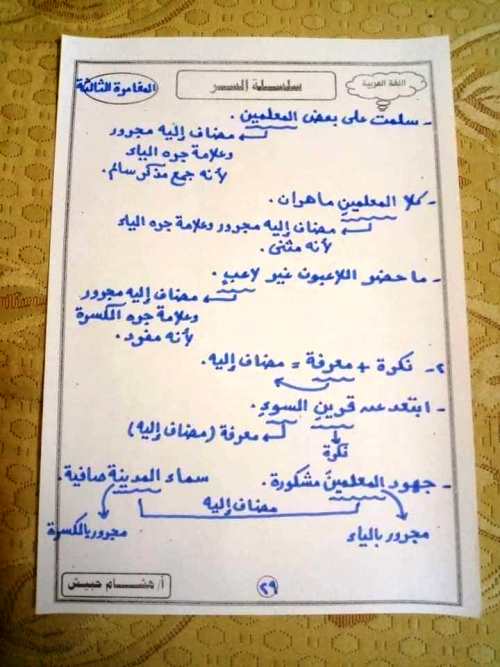 اللغة العربية
سلسلة السر
المغامرة الثالثة
- سلمت على بعض المعلمين.
مضاف إليه مجرور
وعلامة جره الياء
لأنه جمع مذكر سالم.
- كلا المعلمين ماهران.
مضاف إليه مجرور وعلامة جره الياء
لأنه مثنى.
- ما حضر اللاعبون غير لاعبٍ.
مضاف إليه مجرور
وعلامة جره الكسرة
لأنه مفرد.
٢- نكرة + معرفة = مضاف إليه.
- ابتعد عن قرين السوء.
نكرة
معرفة (مضاف إليه)
- جهود المعلمين مشكورة. سماء المدينة صافية.
مضاف إليه
مجرور بالياء مجرور بالكسرة
أ/ هشام حبيش
٢٩